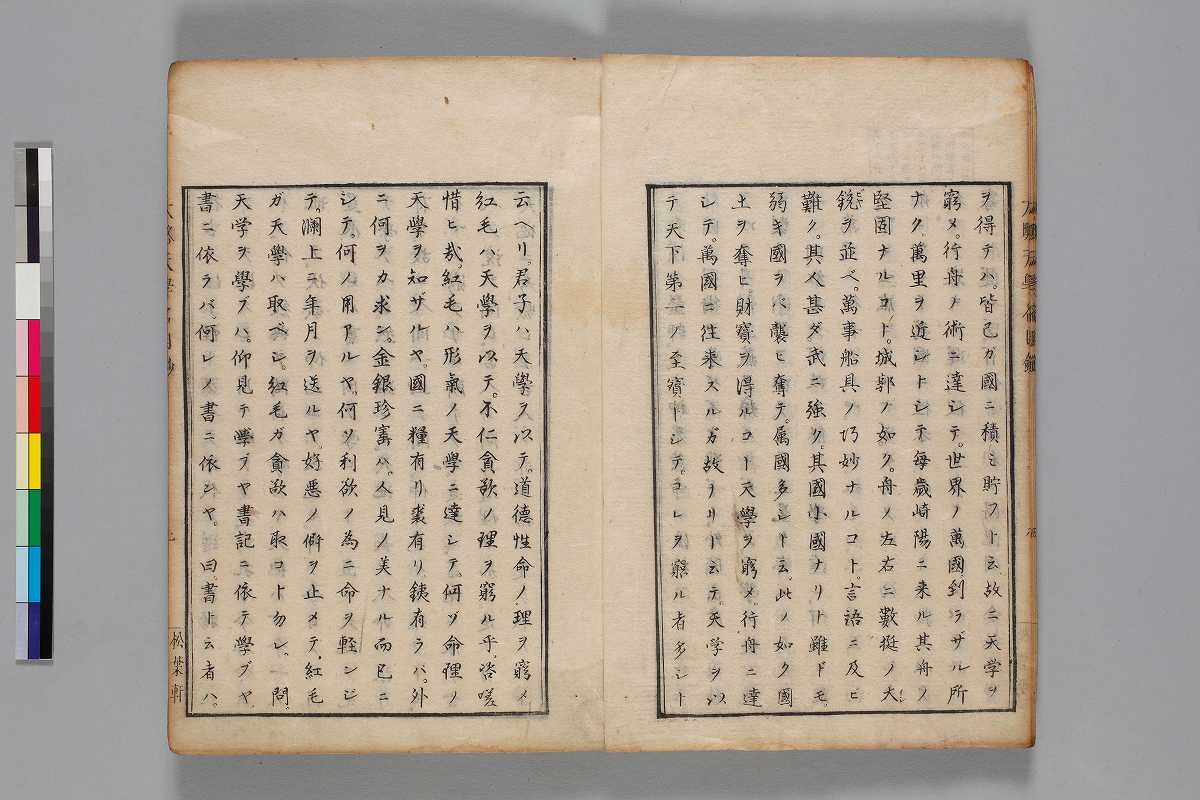 ヲ得テハ。皆己カ國ニ積ミ貯フト云故ニ天学ヲ
窮メ。行舟ノ術ニ達シテ。世界ノ萬國到ラザル所
ナク。萬里ヲ近シトシテ毎歳崎陽ニ来ル其舟ノ
堅固ナルコト。城郭ノ如ク。舟ノ左右ニ數挺ノ大
銃ヲ並ベ。萬事船具ノ巧妙ナルコト。言語ニ及ビ
難ク。其人甚ダ武ニ強ク。其國小國ナリト雖ドモ。
弱キ國ヲバ襲ヒ奪テ。属國多シト云。此ノ如ク國
土ヲ奪ヒ財寳ヲ得ルコト天學ヲ窮メ。行舟ニ達
シテ。萬國ニ往来スルガ故ナリト云テ。天学ヲ以
テ天下第一ノ至寳トシテ。コレヲ窮ル者多シト
云ヘリ。君子ハ天學ヲ以テ。道德性命ノ理ヲ窮メ
紅毛ハ天學ヲ以テ。不仁貪欲ノ理ヲ窮ル乎。咨嗟
惜ヒ哉。紅毛ハ形氣ノ天學ニ達シテ。何ゾ命理ノ
天學ヲ知ザルヤ。國ニ糧有リ裘有リ銕有ラバ。外
ニ何ヲカ求ン。金銀珍寳ハ。人見ノ美ナル而已ニ
シテ。何ノ用アルヤ。何ソ利欲ノ為ニ命ヲ軽ンジ
テ。瀾上ニ年月ヲ送ルヤ。好悪ノ僻ヲ止メテ。紅毛
ガ天學ハ取ベシ。紅毛ガ貪欲ハ取コト勿レ。問。
天学ヲ學ブハ。仰見テ學ブヤ書記ニ依テ學ブヤ。
書ニ依ラバ。何レノ書ニ依ンヤ。曰。書ト云者ハ。
松葉軒